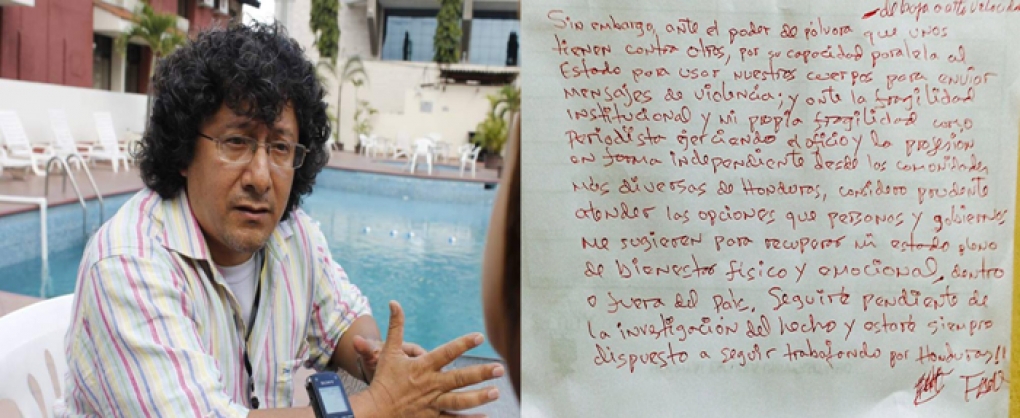 de baja o alta velocidad
Sin embargo, ante el poder de pólvora que unos
tienen contra otros, por su capacidad paralela al
Estado para usar nuestros cuerpos para enviar
mensajes de violencia; y ante la fragilidad
institucional y mi propia fragilidad como
periodista ejerciendo el oficio y la profesión
en forma independiente desde las comunidades
más diversas de Honduras, considero prudente
atender las opciones que personas y gobiernos
me sugieren para recuperar mi estado pleno
de bienestar físico y emocional, dentro
o fuera del país. Seguiré pendiente de
la investigación del hecho y estaré siempre
dispuesto a seguir trabajando por Honduras!!